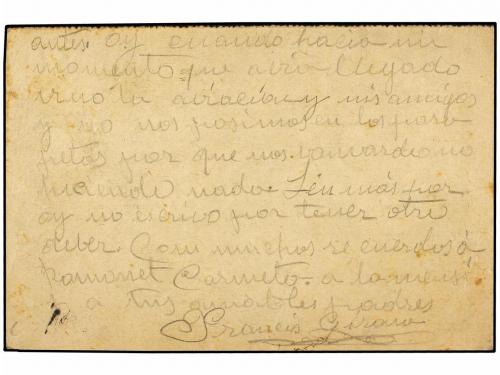 antes. oy cuando hacia un
momento que abia llegado
vino la abiacion y mis amigos
y yo nos posimos en los para
petos por que nos bonvardio no
haciendo nada. Sin más por
oy no escrivo por tener otro
deber. Con muchos recuerdos á
Ramonet Carmeta. a la
a tus amables padres
Francis